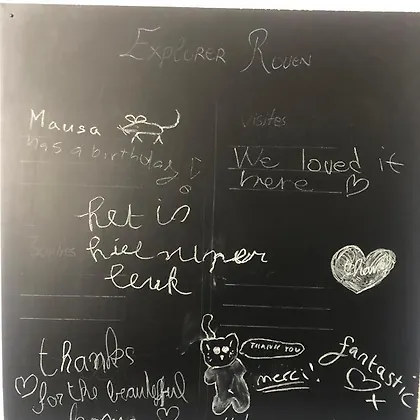 Explorer Rouen
Mausa
has a birthday!
Visites
We loved it
here
het is
hiel
leuk
thank
THANK YOU
merci!
fantastic
thanks
for the beautiful